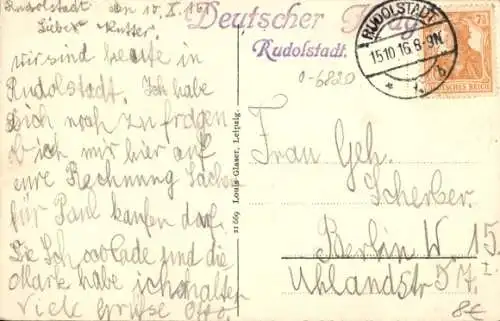 Rudolstadt den 15. X. 16.
Liebe Mutter.
wir sind heute in
Rudolstadt. Ich habe
Dich noch zu fragen
ob ich mir hier auf
eure Rechnung Sachen
für Paul kaufen darf.
Die Schocolade und die
Mark habe ich erhalten
Viele Grüsse Otto.
21669 Louis Glaser, Leipzig.
Deutscher
Rudolstadt.
RUDOLSTADT
15.10.16.8-9N.
* b
7½
DEUTSCHES REICH
0-6820
Frau Geh.
Scherber
Berlin W 15
Uhlandstr.
I.
8€